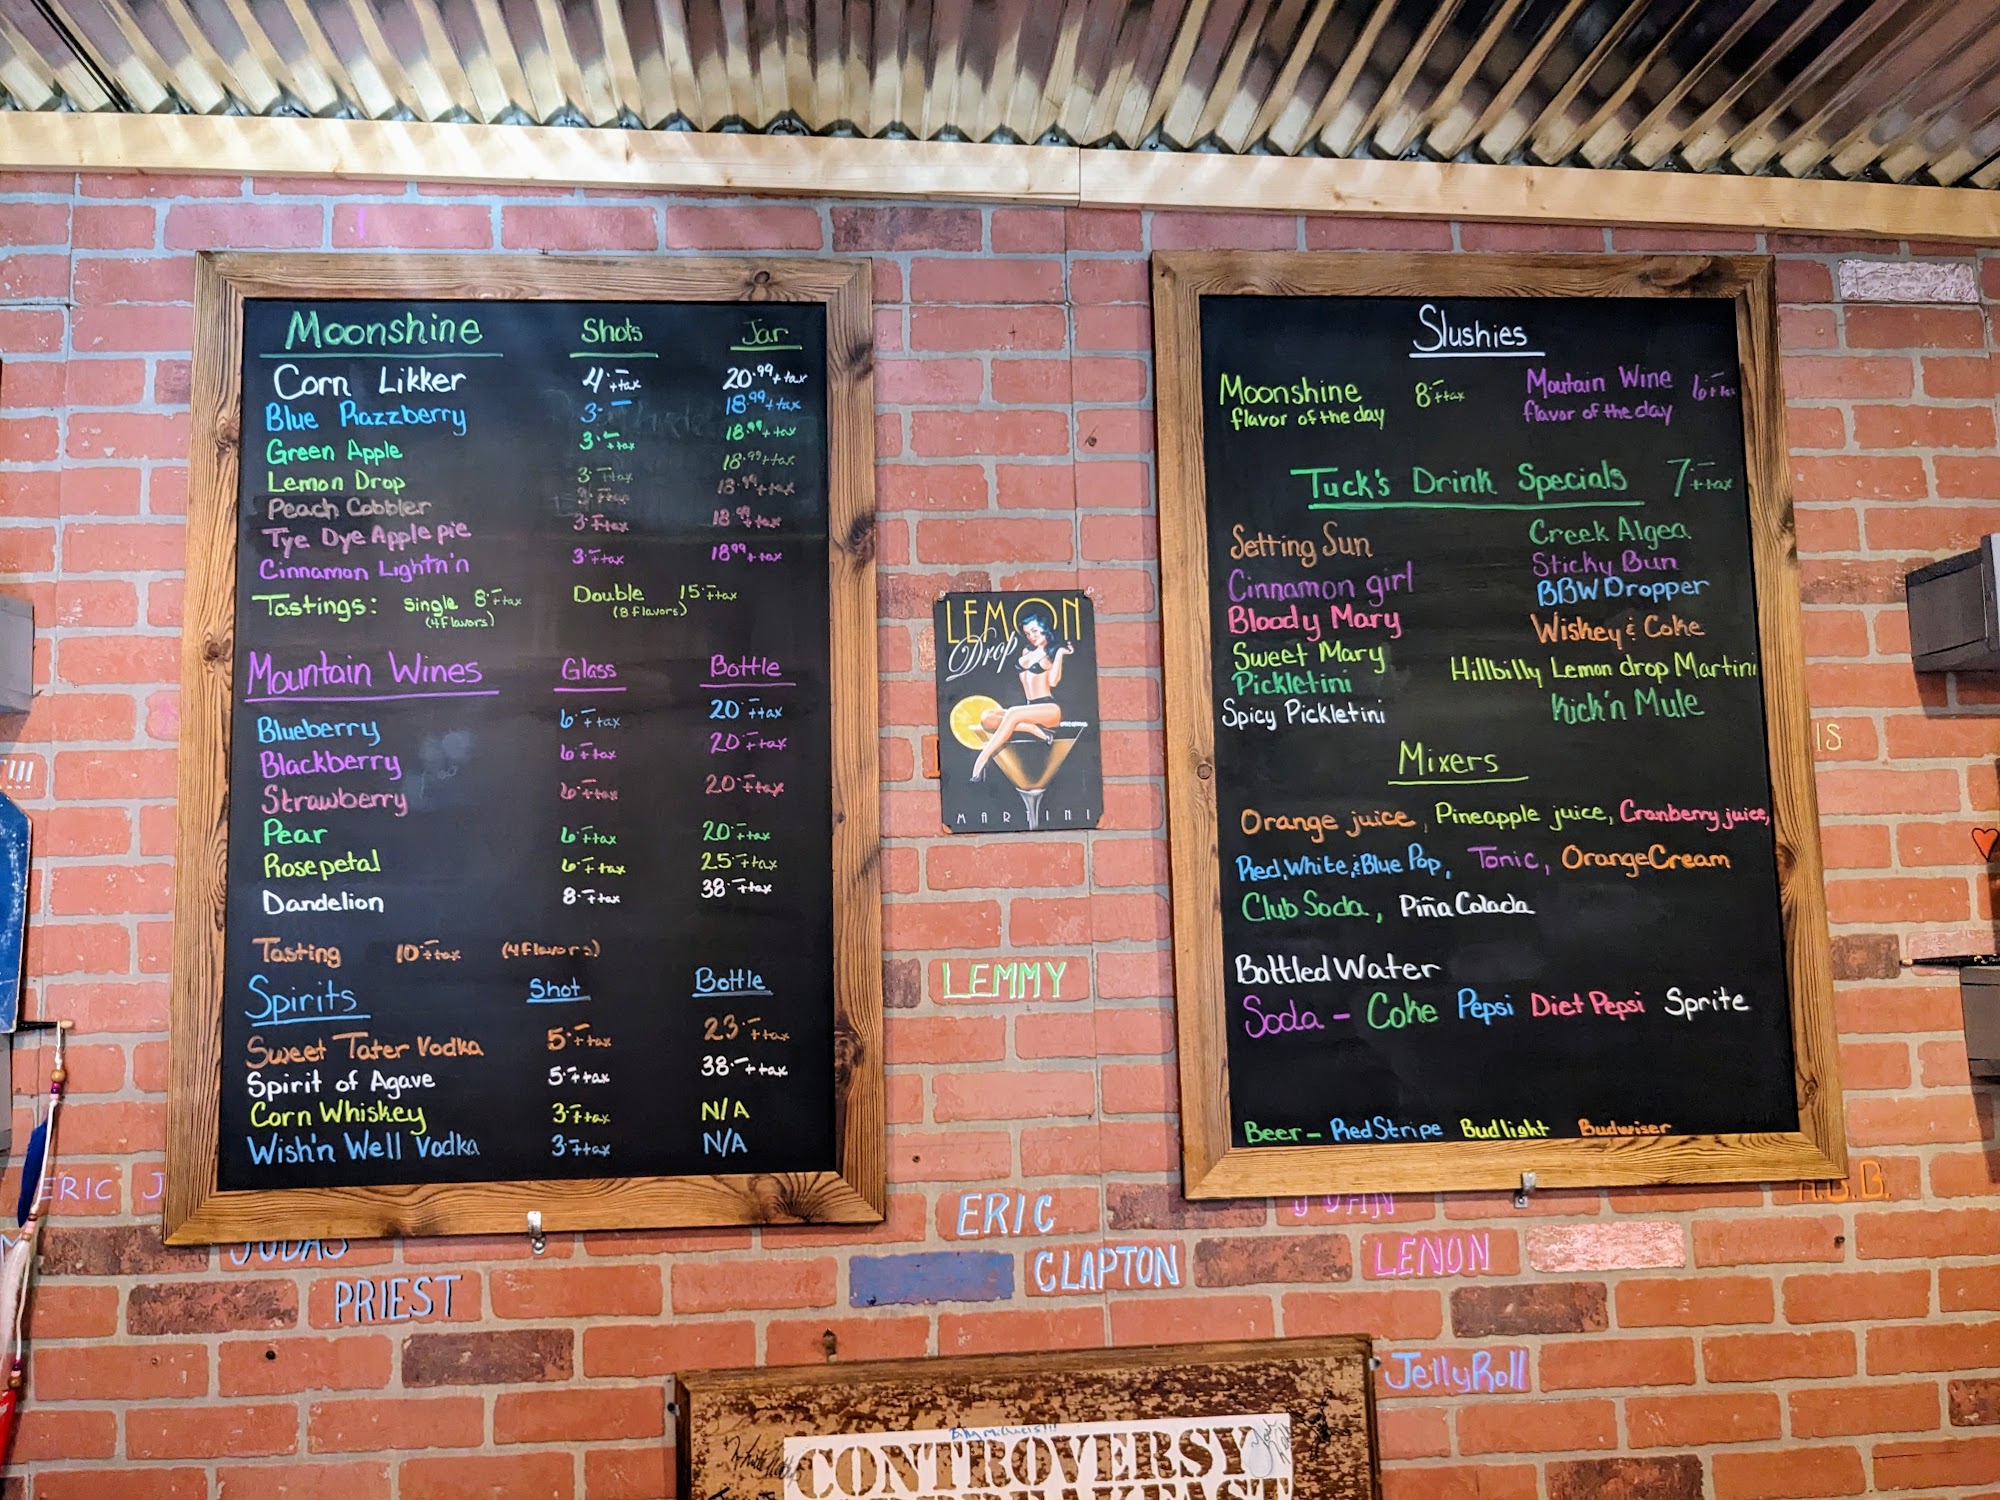 Moonshine Shots Jar
Corn Likker 4.- +tax 20.99 +tax
Blue Razzberry 3.- 18.99 +tax
Green Apple 3.- +tax 18.99 +tax
Lemon Drop 3.- +tax 18.99 +tax
Peach Cobbler 3.- +tax 18.99 +tax
Tye Dye Apple pie 3.- +tax 18.99 +tax
Cinnamon Lightn'n 3.- +tax 18.99 +tax
Tastings: single 8.- +tax Double 15.- +tax
(4 flavors) (8 flavors)
Mountain Wines Glass Bottle
Blueberry 6.- +tax 20.- +tax
Blackberry 6.- +tax 20.- +tax
Strawberry 6.- +tax 20.- +tax
Pear 6.- +tax 20.- +tax
Rosepetal 6.- +tax 25.- +tax
Dandelion 8.- +tax 38.- +tax
Tasting 10.- +tax (4 flavors)
Spirits Shot Bottle
Sweet Tater Vodka 5.- +tax 23.- +tax
Spirit of Agave 5.- +tax 38.- +tax
Corn Whiskey 3.- +tax N/A
Wish'n Well Vodka 3.- +tax N/A
LEMON
Drop
MARTINI
Slushies
Moonshine 8.- +tax Moutain Wine 6 +tax
flavor of the day flavor of the day
Tuck's Drink Specials 7.- +tax
Setting Sun Creek Algea
Cinnamon girl Sticky Bun
Bloody Mary BBW Dropper
Sweet Mary Wiskey & Coke
Pickletini Hillbilly Lemon drop Martini
Spicy Pickletini Kick'n Mule
Mixers
Orange juice, Pineapple juice, Cranberry juice,
Red, White, & Blue Pop, Tonic, Orange Cream
Club Soda, Piña Colada
Bottled Water
Soda - Coke Pepsi Diet Pepsi Sprite
Beer - Red Stripe Bud light Budwiser
IS
LEMMY
ERIC J
JUDAS
PRIEST
ERIC
CLAPTON
LENON
A.B.B.
JellyRoll
CONTROVERSY